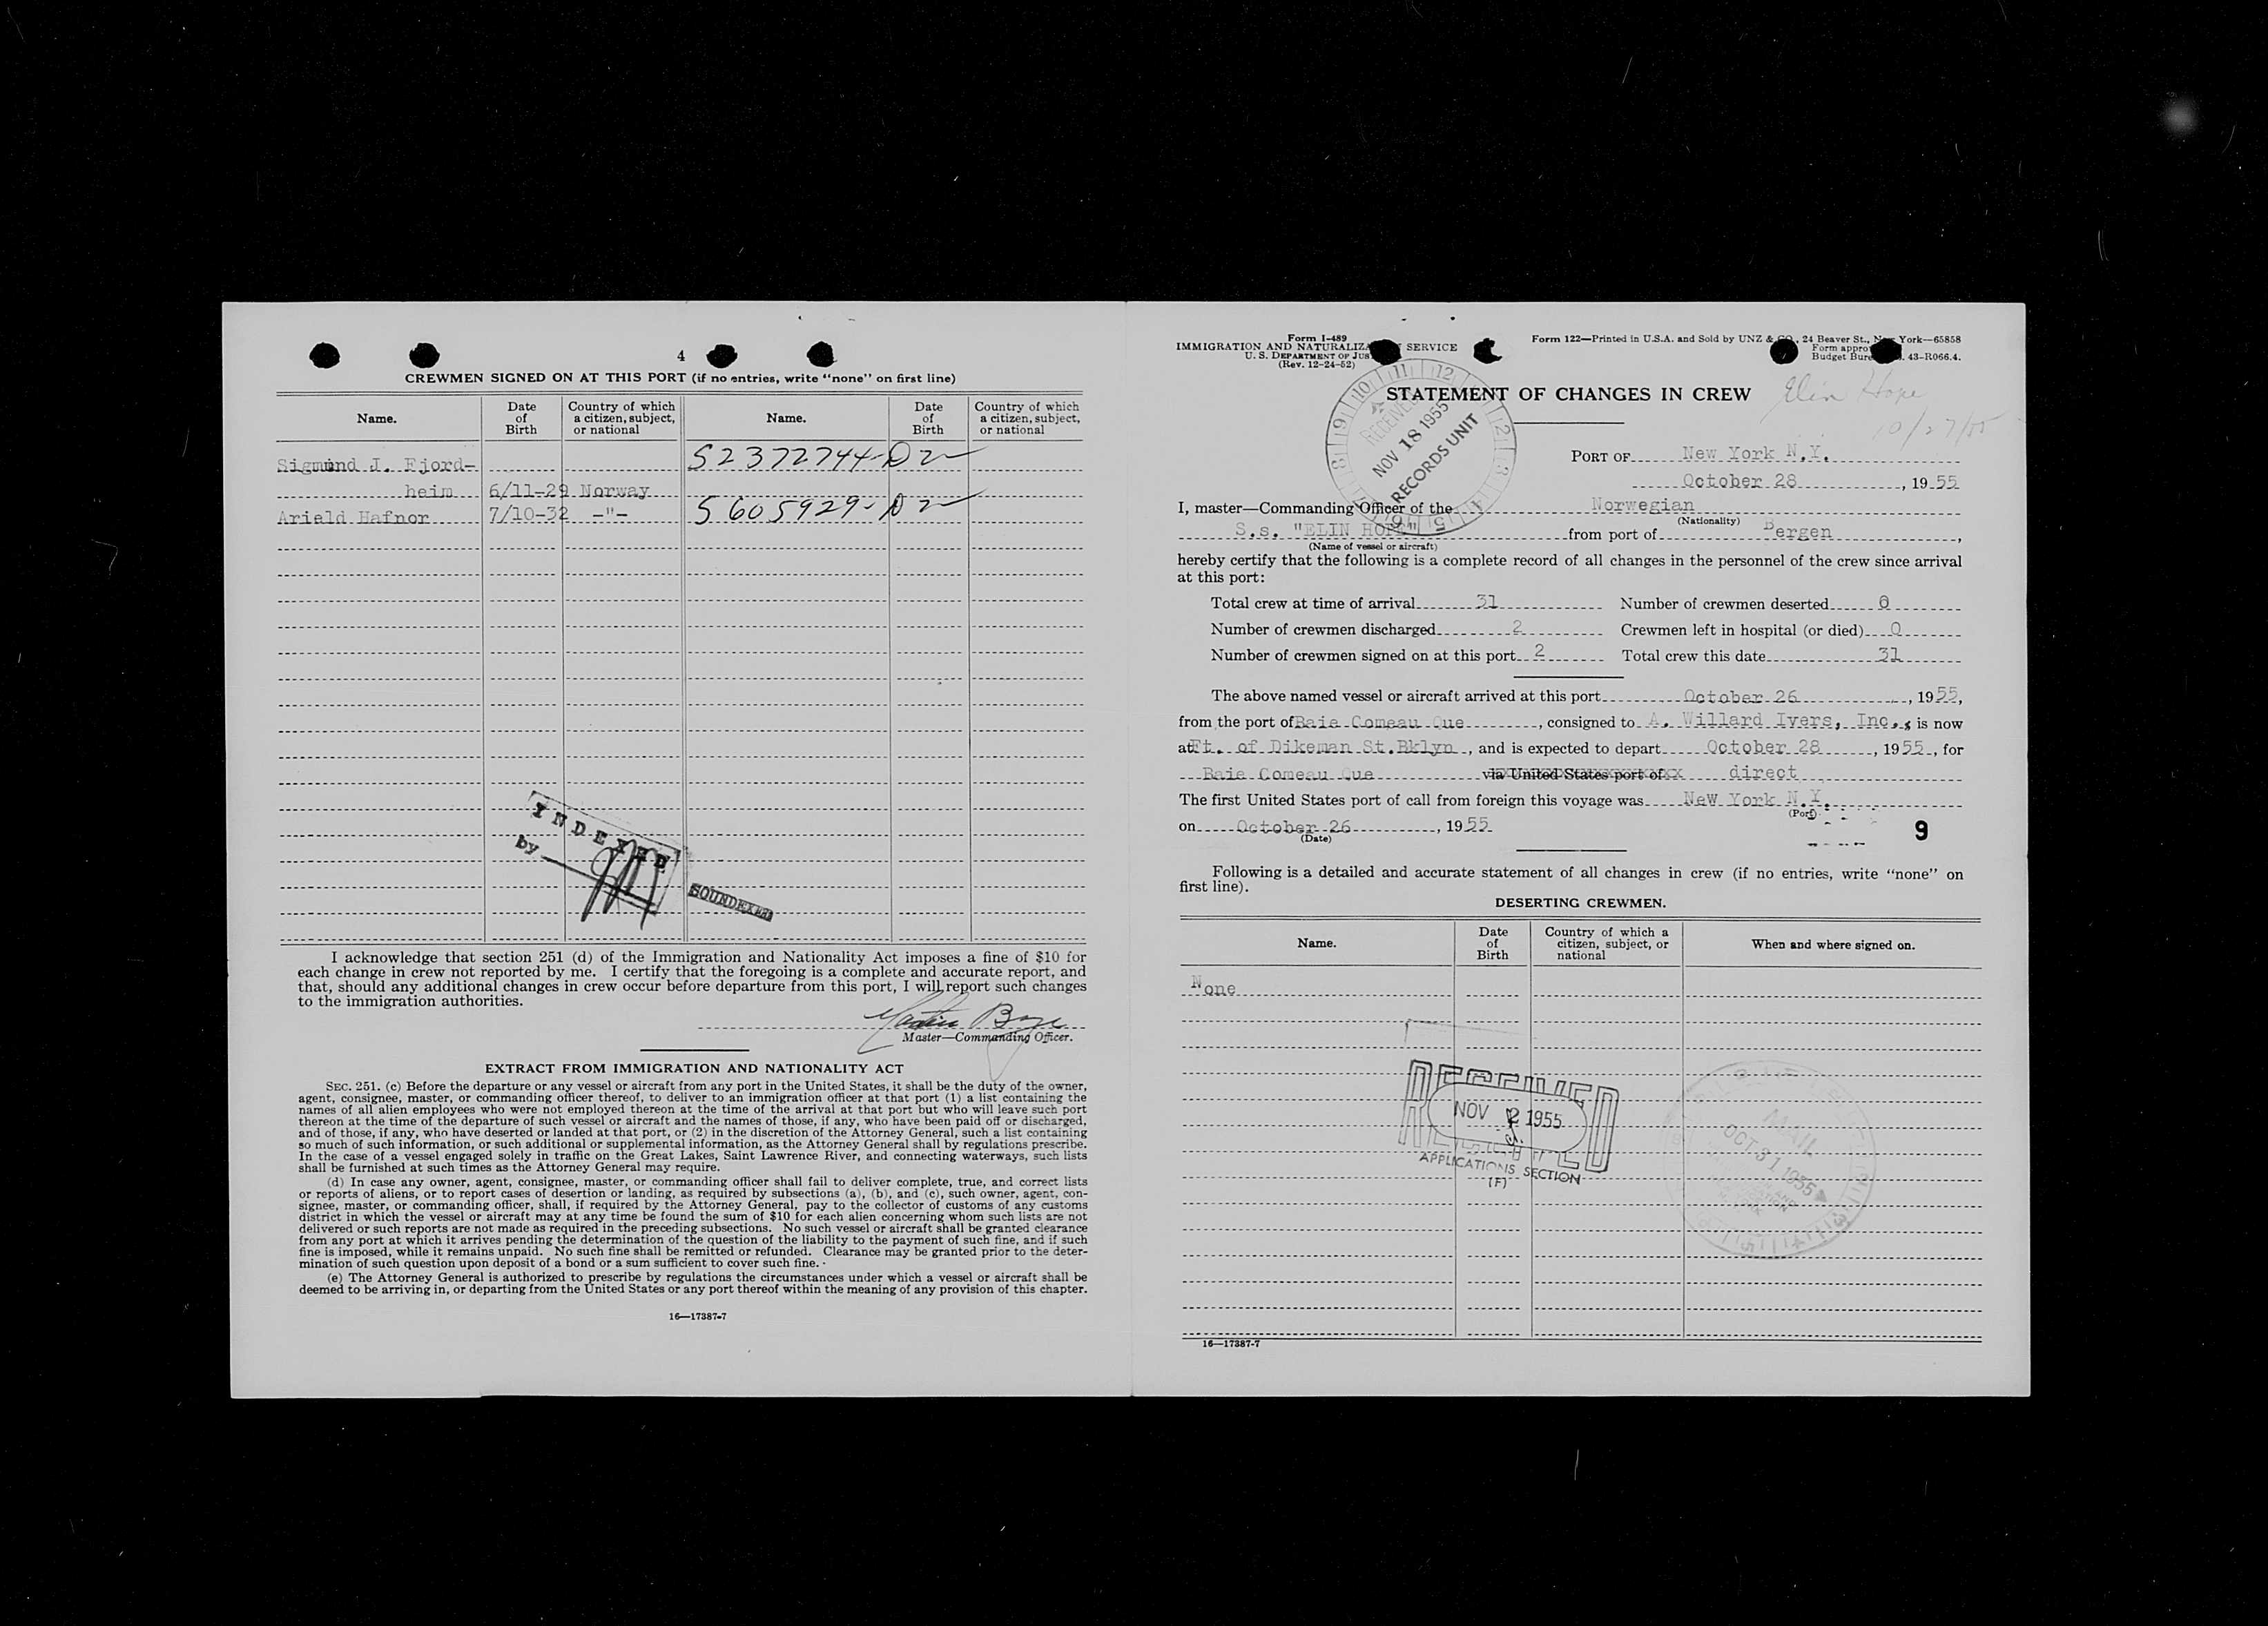 4
CREWMEN SIGNED ON AT THIS PORT (if no entries, write "none" on first line)
Name. Date of Birth Country of which a citizen, subject, or national Name. Date of Birth Country of which a citizen, subject, or national
Sigmund J. Fjord- S2372744-D2
heim 6/11-29 Norway
Arield Hafnor 7/10-32 -"- S605929-D2
INDEXED
by
SOUNDEXED
I acknowledge that section 251 (d) of the Immigration and Nationality Act imposes a fine of $10 for
each change in crew not reported by me. I certify that the foregoing is a complete and accurate report, and
that, should any additional changes in crew occur before departure from this port, I will report such changes
to the immigration authorities.
Master—Commanding Officer.
EXTRACT FROM IMMIGRATION AND NATIONALITY ACT
SEC. 251. (c) Before the departure or any vessel or aircraft from any port in the United States, it shall be the duty of the owner,
agent, consignee, master, or commanding officer thereof, to deliver to an immigration officer at that port (1) a list containing the
names of all alien employees who were not employed thereon at the time of the arrival at that port but who will leave such port
thereon at the time of the departure of such vessel or aircraft and the names of those, if any, who have been paid off or discharged,
and of those, if any, who have deserted or landed at that port, or (2) in the discretion of the Attorney General, such a list containing
so much of such information, or such additional or supplemental information, as the Attorney General shall by regulations prescribe.
In the case of a vessel engaged solely in traffic on the Great Lakes, Saint Lawrence River, and connecting waterways, such lists
shall be furnished at such times as the Attorney General may require.
(d) In case any owner, agent, consignee, master, or commanding officer shall fail to deliver complete, true, and correct lists
or reports of aliens, or to report cases of desertion or landing, as required by subsections (a), (b), and (c), such owner, agent, con-
signee, master, or commanding officer, shall, if required by the Attorney General, pay to the collector of customs of any customs
district in which the vessel or aircraft may at any time be found the sum of $10 for each alien concerning whom such lists are not
delivered or such reports are not made as required in the preceding subsections. No such vessel or aircraft shall be granted clearance
from any port at which it arrives pending the determination of the question of the liability to the payment of such fine, and if such
fine is imposed, while it remains unpaid. No such fine shall be remitted or refunded. Clearance may be granted prior to the deter-
mination of such question upon deposit of a bond or a sum sufficient to cover such fine.
(e) The Attorney General is authorized to prescribe by regulations the circumstances under which a vessel or aircraft shall be
deemed to be arriving in, or departing from the United States or any port thereof within the meaning of any provision of this chapter.
16—17387-7
Form I-489
IMMIGRATION AND NATURALIZA SERVICE
U. S. DEPARTMENT OF JUS
(Rev. 12-24-52)
Form 122—Printed in U.S.A. and Sold by UNZ & CO., 24 Beaver St., New York—65858
Form appro
Budget Bure 43-R066.4.
STATEMENT OF CHANGES IN CREW
Elin Hope
10/27/55
RECEIVED
NOV 18 1955
RECORDS UNIT
PORT OF New York N.Y.
October 28, 1955
I, master—Commanding Officer of the Norwegian
(Nationality)
S.s. "ELIN HOPE" from port of Bergen,
(Name of vessel or aircraft)
hereby certify that the following is a complete record of all changes in the personnel of the crew since arrival
at this port:
Total crew at time of arrival 31 Number of crewmen deserted 0
Number of crewmen discharged 2 Crewmen left in hospital (or died) 0
Number of crewmen signed on at this port 2 Total crew this date 31
The above named vessel or aircraft arrived at this port October 26, 1955,
from the port of Baie Comeau Que, consigned to A. Willard Ivers, Inc., is now
at Ft. of Dikeman St. Bklyn, and is expected to depart October 28, 1955, for
Baie Comeau Que via United States port of direct
The first United States port of call from foreign this voyage was NeW York N.Y.
(Port)
on October 26, 1955
(Date)
9
Following is a detailed and accurate statement of all changes in crew (if no entries, write "none" on
first line).
DESERTING CREWMEN.
Name. Date of Birth Country of which a citizen, subject, or national When and where signed on.
None
RECEIVED
NOV 2 1955
APPLICATIONS SECTION
(F)
MAIL
OCT 31 1955
16—17387-7